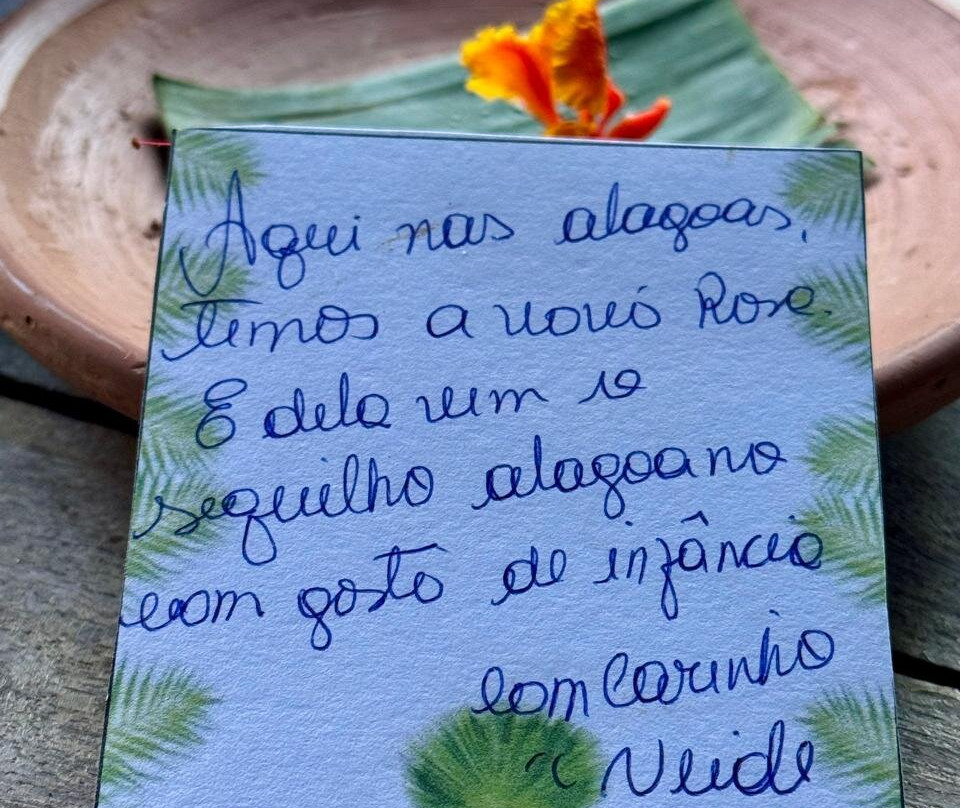 Aqui nas alagoas,
temos a vovó Rose.
E dela vem o
sequilho alagoano
com gosto de infância
com carinho
Neide